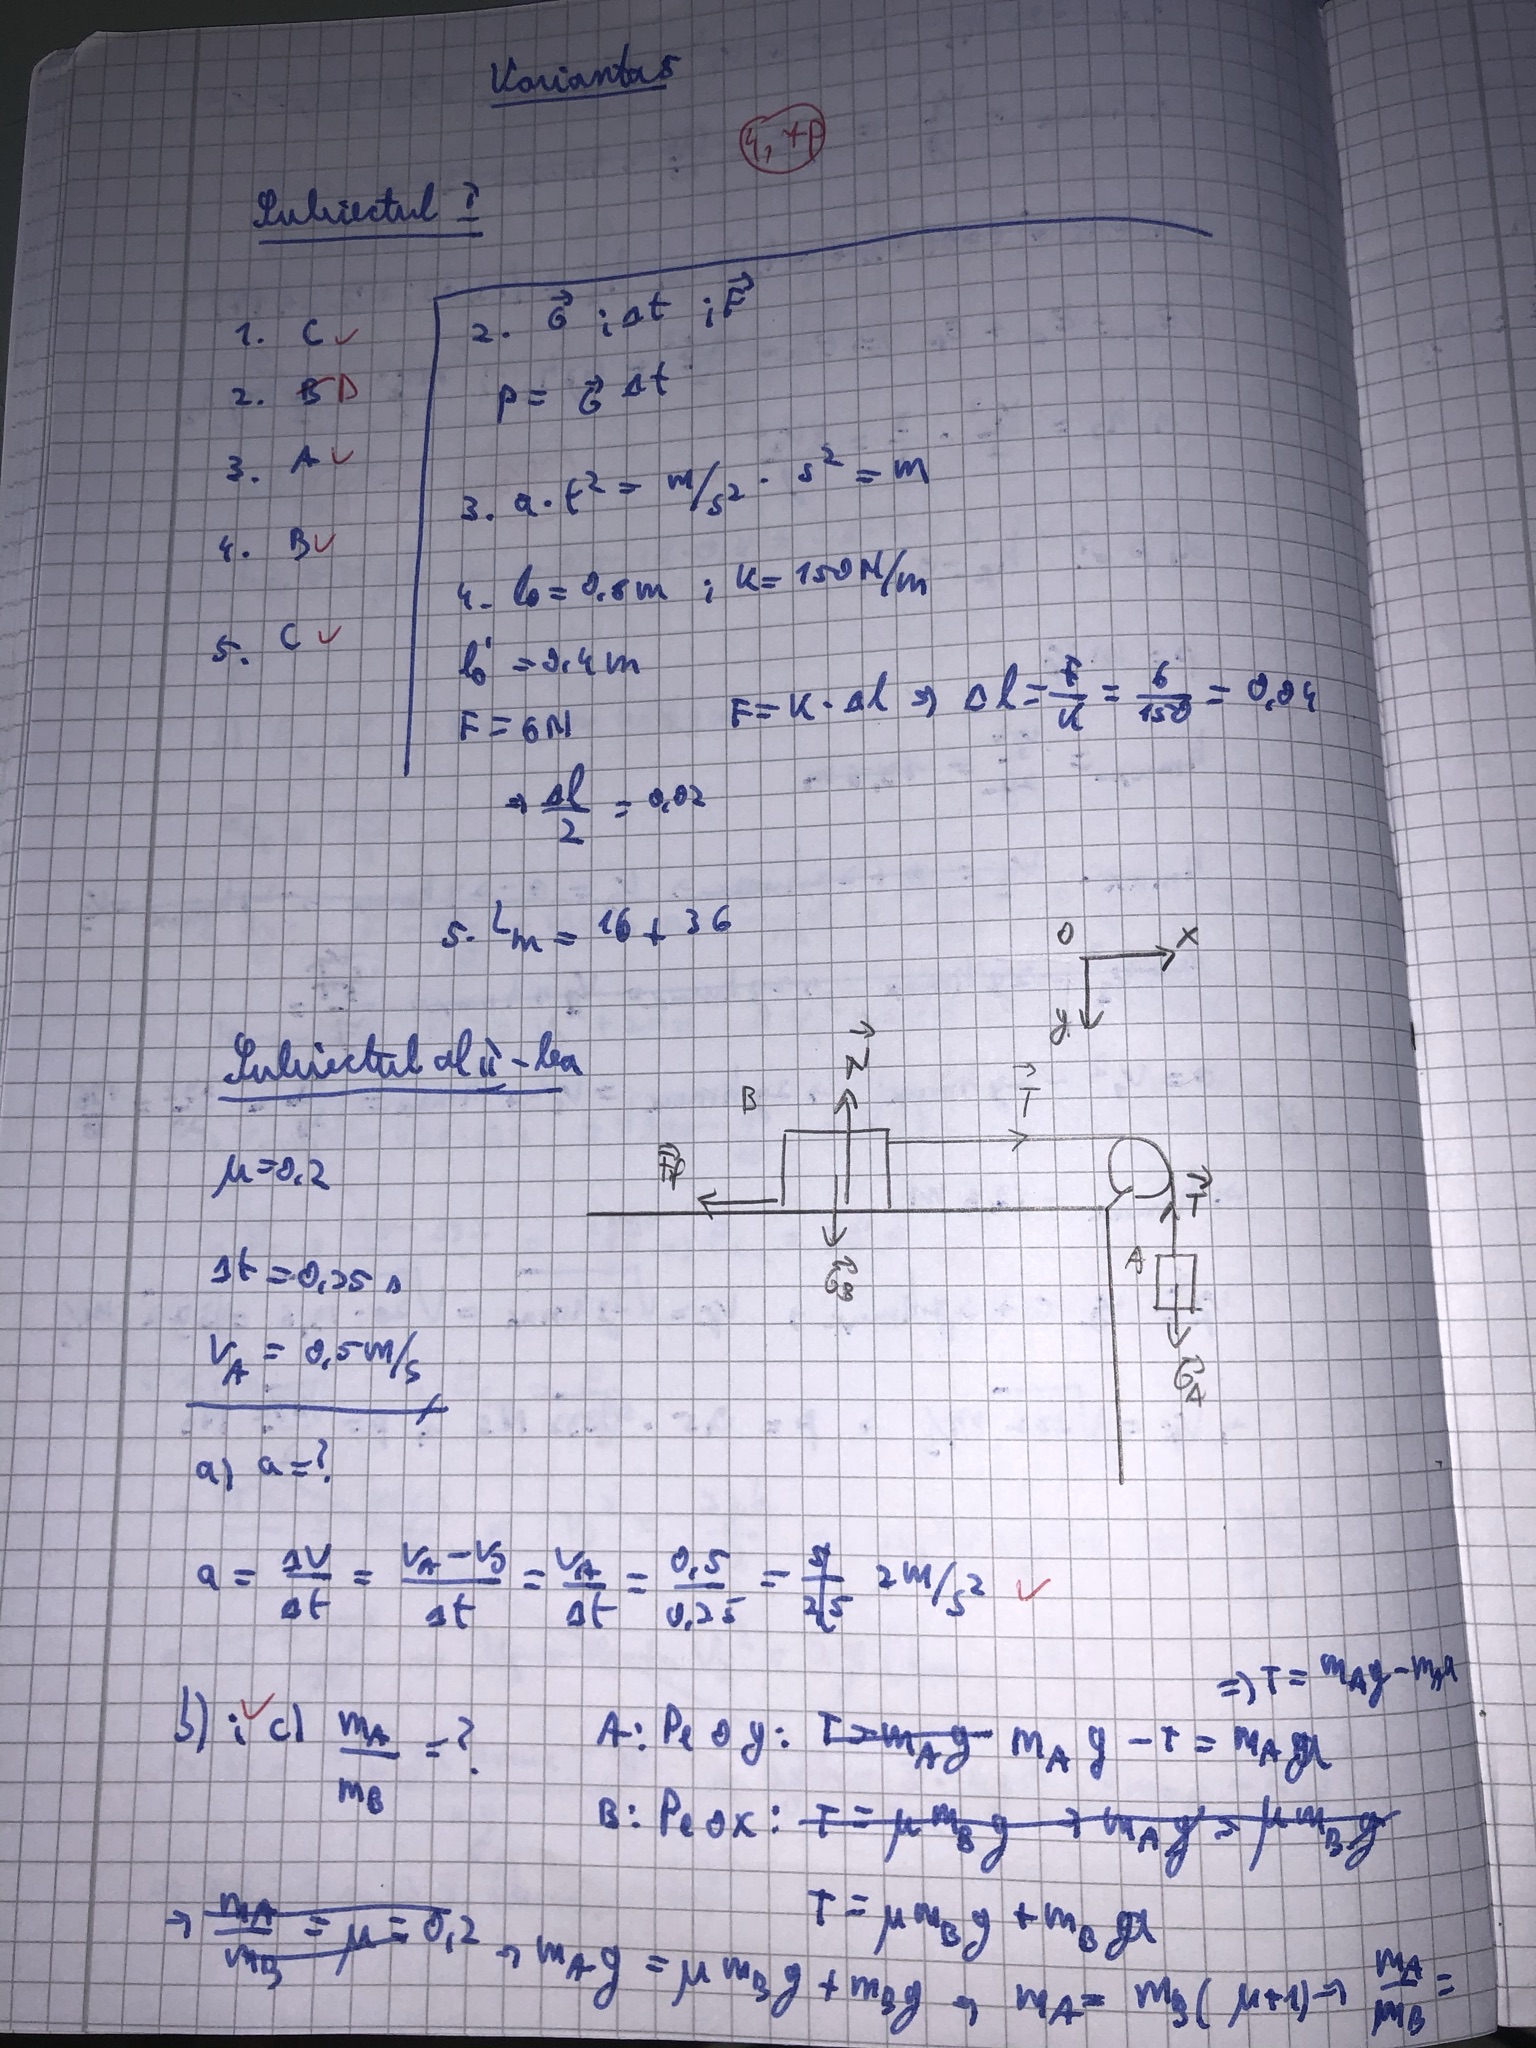 Varianta 5
4,7p
Subiectul I
1. C ✓
2. B D
3. A ✓
4. B ✓
5. C ✓
2. G⃗ ; Δt ; F⃗
p = G⃗ Δt
3. a · t² = m/s² · s² = m
4. l₀ = 0,8 m ; K = 150 N/m
l₀' = 0,4 m
F = 6 N F = K · Δl ⇒ Δl = F/K = 6/150 = 0,04
⇒ Δl/2 = 0,02
5. Lm = 16 + 36
O x
y
Subiectul al II-lea
N⃗
B T⃗
μ = 0,2
F⃗f T⃗
A
Δt = 0,25 s
G⃗B
V_A = 0,5 m/s
G⃗A
a) a = ?
a = ΔV/Δt = (V_A - V_0)/Δt = V_A/Δt = 0,5/0,25 = 2 m/s² ✓
⇒ T = m_A g - m_A a
b) ; ✓ c) m_A/m_B = ? A: Pe oy: T = m_A g m_A g - T = m_A a
B: Pe ox: T = μ m_B g → m_A g = μ m_B g
T = μ m_B g + m_B a
→ m_A/m_B = μ = 0,2 → m_A g = μ m_B g + m_B g → m_A = m_B ( μ+1) → m_A/m_B =